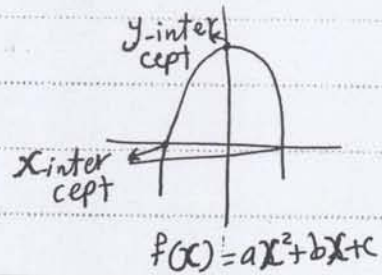 y-inter
cept
x inter
cept
f(x) = ax²+bx+c